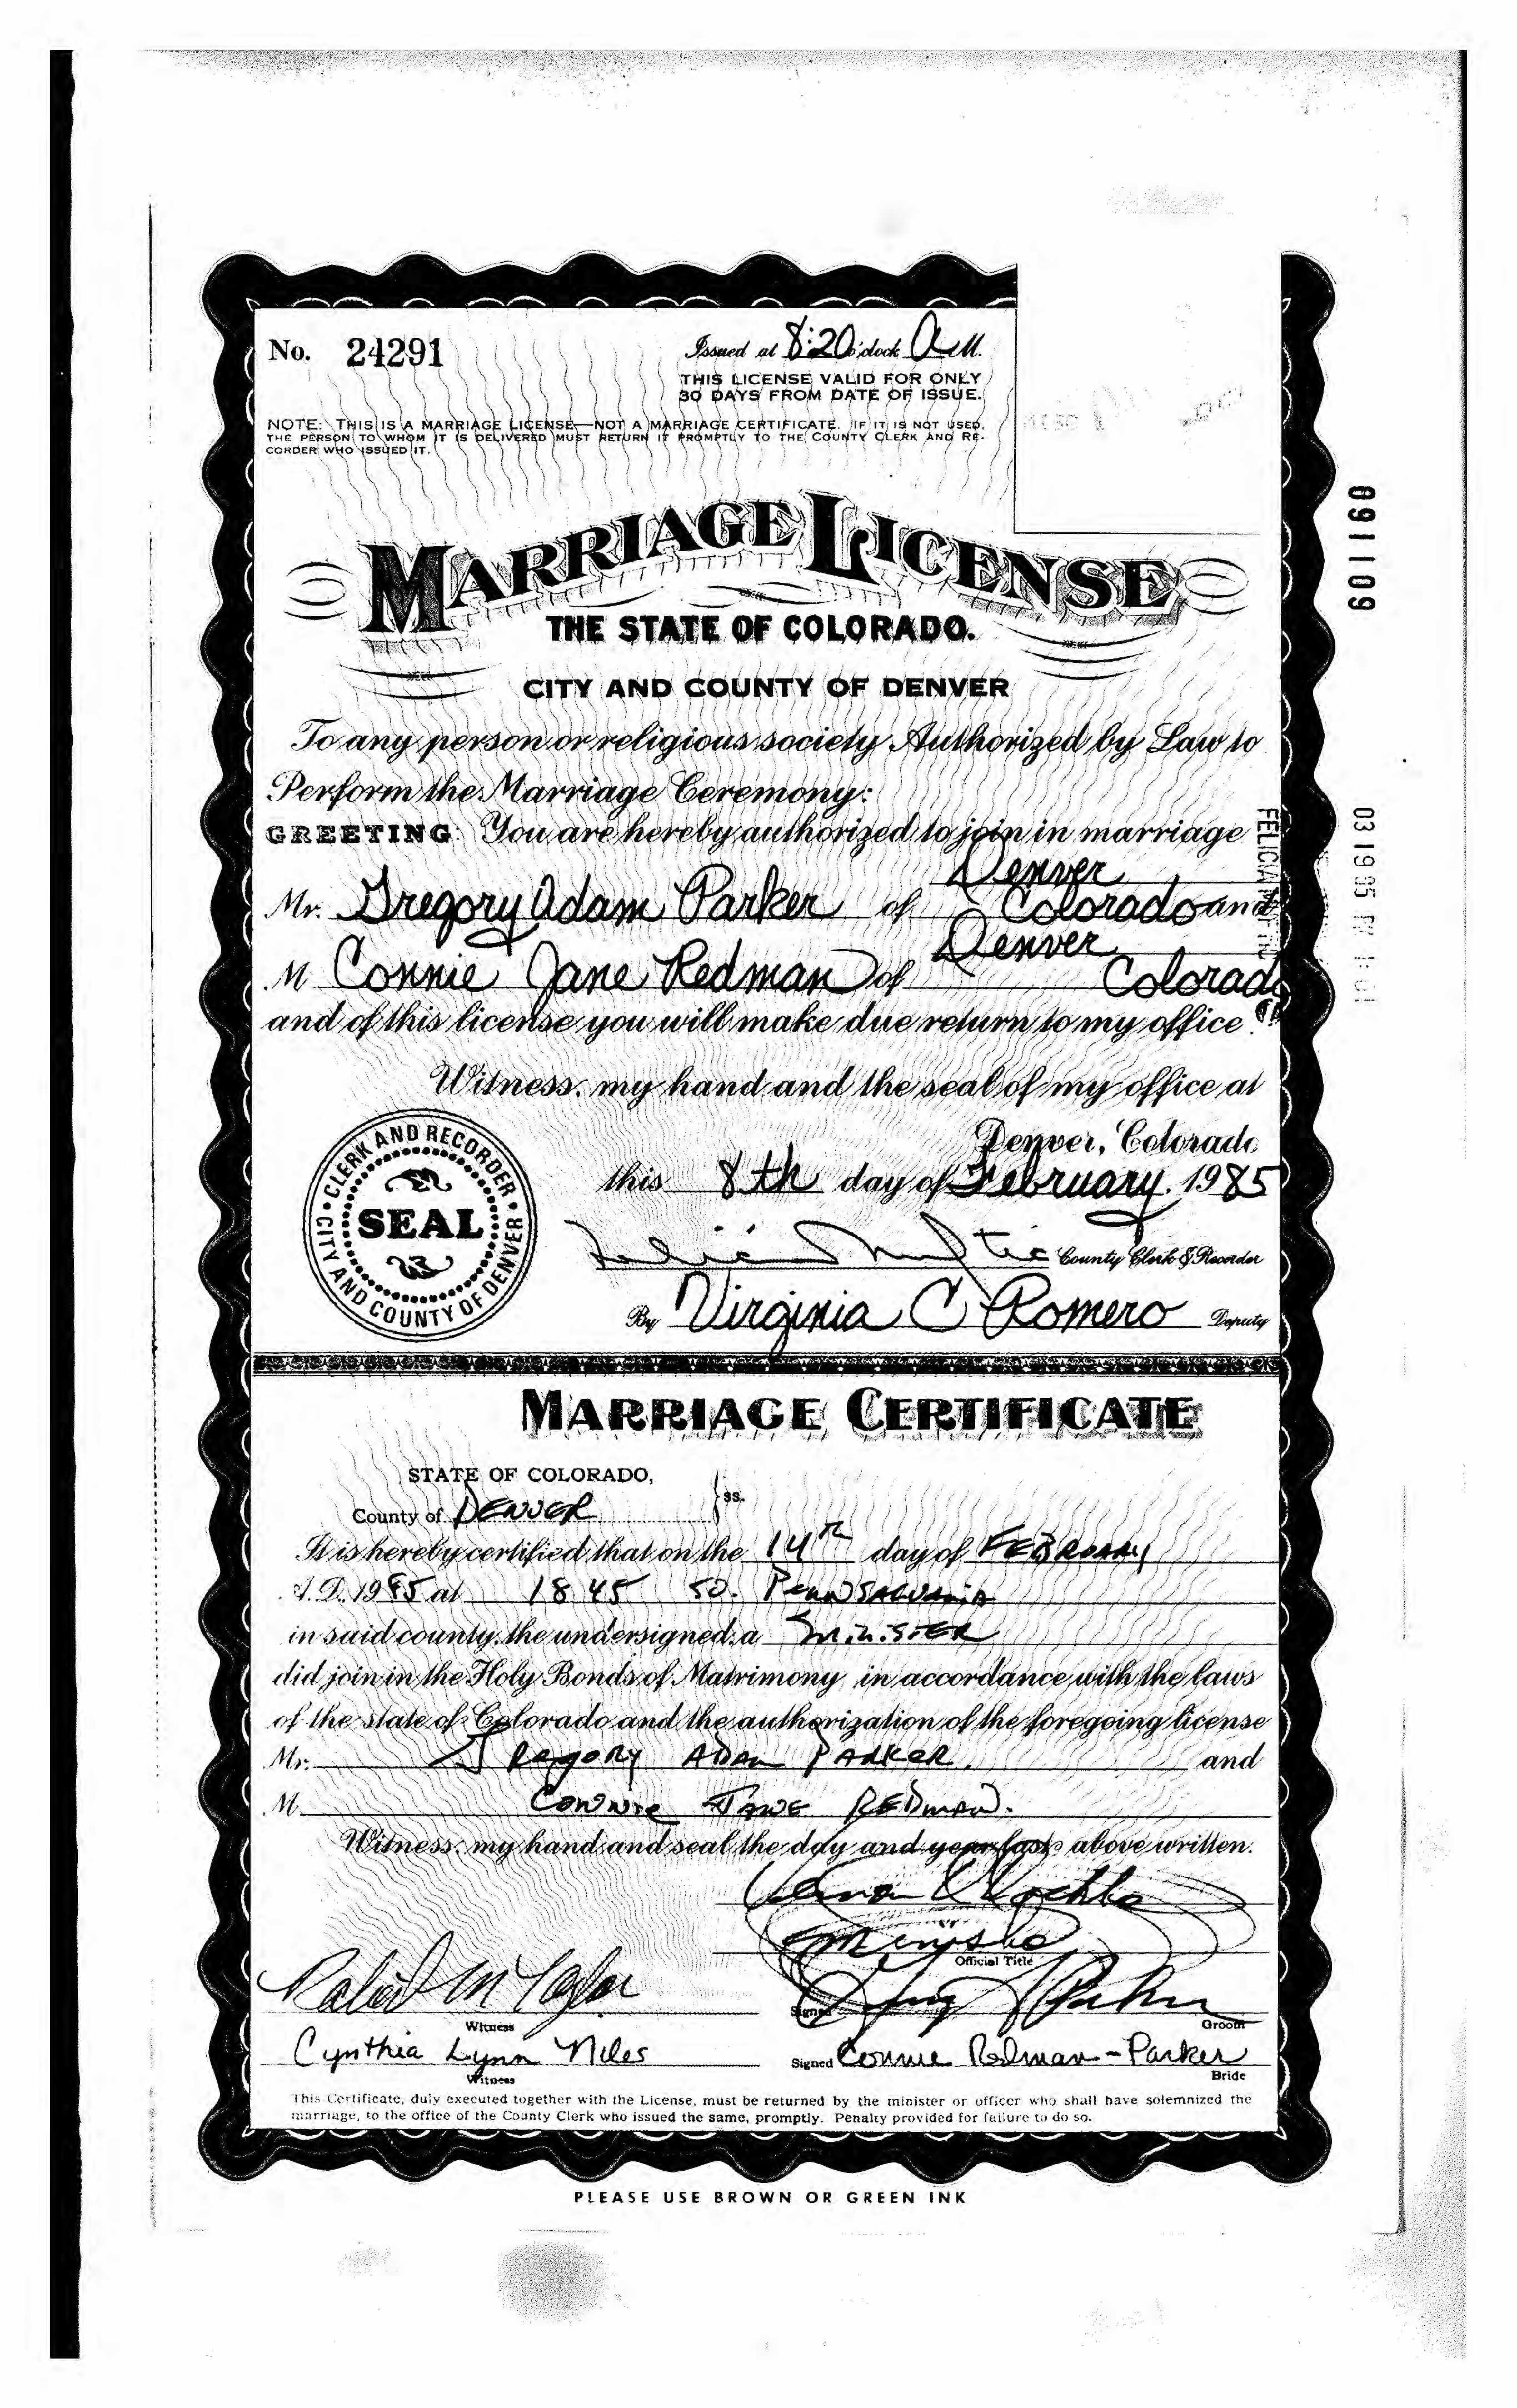 No. 24291
Issued at 8:20 o'clock A M.
THIS LICENSE VALID FOR ONLY
30 DAYS FROM DATE OF ISSUE.
NOTE: THIS IS A MARRIAGE LICENSE—NOT A MARRIAGE CERTIFICATE. IF IT IS NOT USED,
THE PERSON TO WHOM IT IS DELIVERED MUST RETURN IT PROMPTLY TO THE COUNTY CLERK AND RE-
CORDER WHO ISSUED IT.
MARRIAGE LICENSE
THE STATE OF COLORADO.
CITY AND COUNTY OF DENVER
To any person or religious society Authorized by Law to
Perform the Marriage Ceremony:
GREETING: You are hereby authorized to join in marriage
Denver
Mr. Gregory Adam Parker of Colorado and
Denver
M Connie Jane Redman of Colorado
and of this license you will make due return to my office.
Witness, my hand and the seal of my office at
Denver, Colorado
this 8th day of February, 1985
County Clerk & Recorder
By Virginia C Romero Deputy
CITY AND COUNTY OF DENVER • CLERK AND RECORDER •
SEAL
MARRIAGE CERTIFICATE
STATE OF COLORADO,
County of DENVER ss.
It is hereby certified that on the 14th day of FEBRUARY
A.D. 1985 at 1845 SO. PENNSALVANIA
in said county, the undersigned, a MINISTER
did join in the Holy Bonds of Matrimony, in accordance with the laws
of the state of Colorado and the authorization of the foregoing license
Mr. Gregory ADAM PARKER and
M CONNIE JANE REDMAN.
Witness, my hand and seal the day and year last above written.
Official Title
Witness
Signed
Groom
Cynthia Lynn Niles
Witness
Signed Connie Redman-Parker
Bride
This Certificate, duly executed together with the License, must be returned by the minister or officer who shall have solemnized the
marriage, to the office of the County Clerk who issued the same, promptly. Penalty provided for failure to do so.
PLEASE USE BROWN OR GREEN INK
091109
FELICA